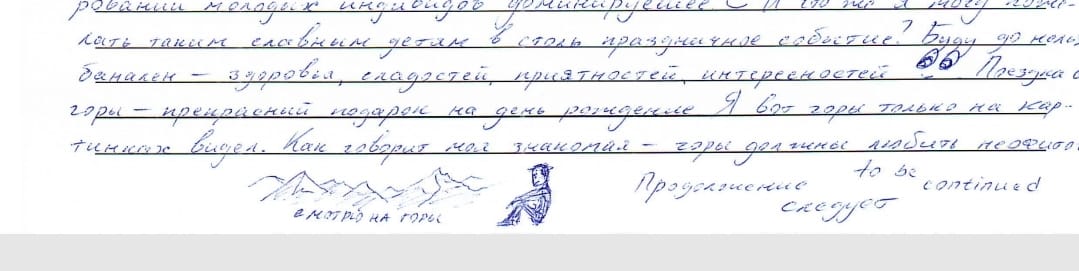 ровании молодых индивидов доминирует
лать таким славным детям в столь праздничное событие? Буду до нель
банален – здоровья, сладостей, приятностей, интересностей Поездка
горы – прекрасный подарок на день рождение Я вот горы только на кар-
тинках видел. Как говорит моя знакомая – горы должны любить
смотрю на горы
Продолжение
следует
to be
continued